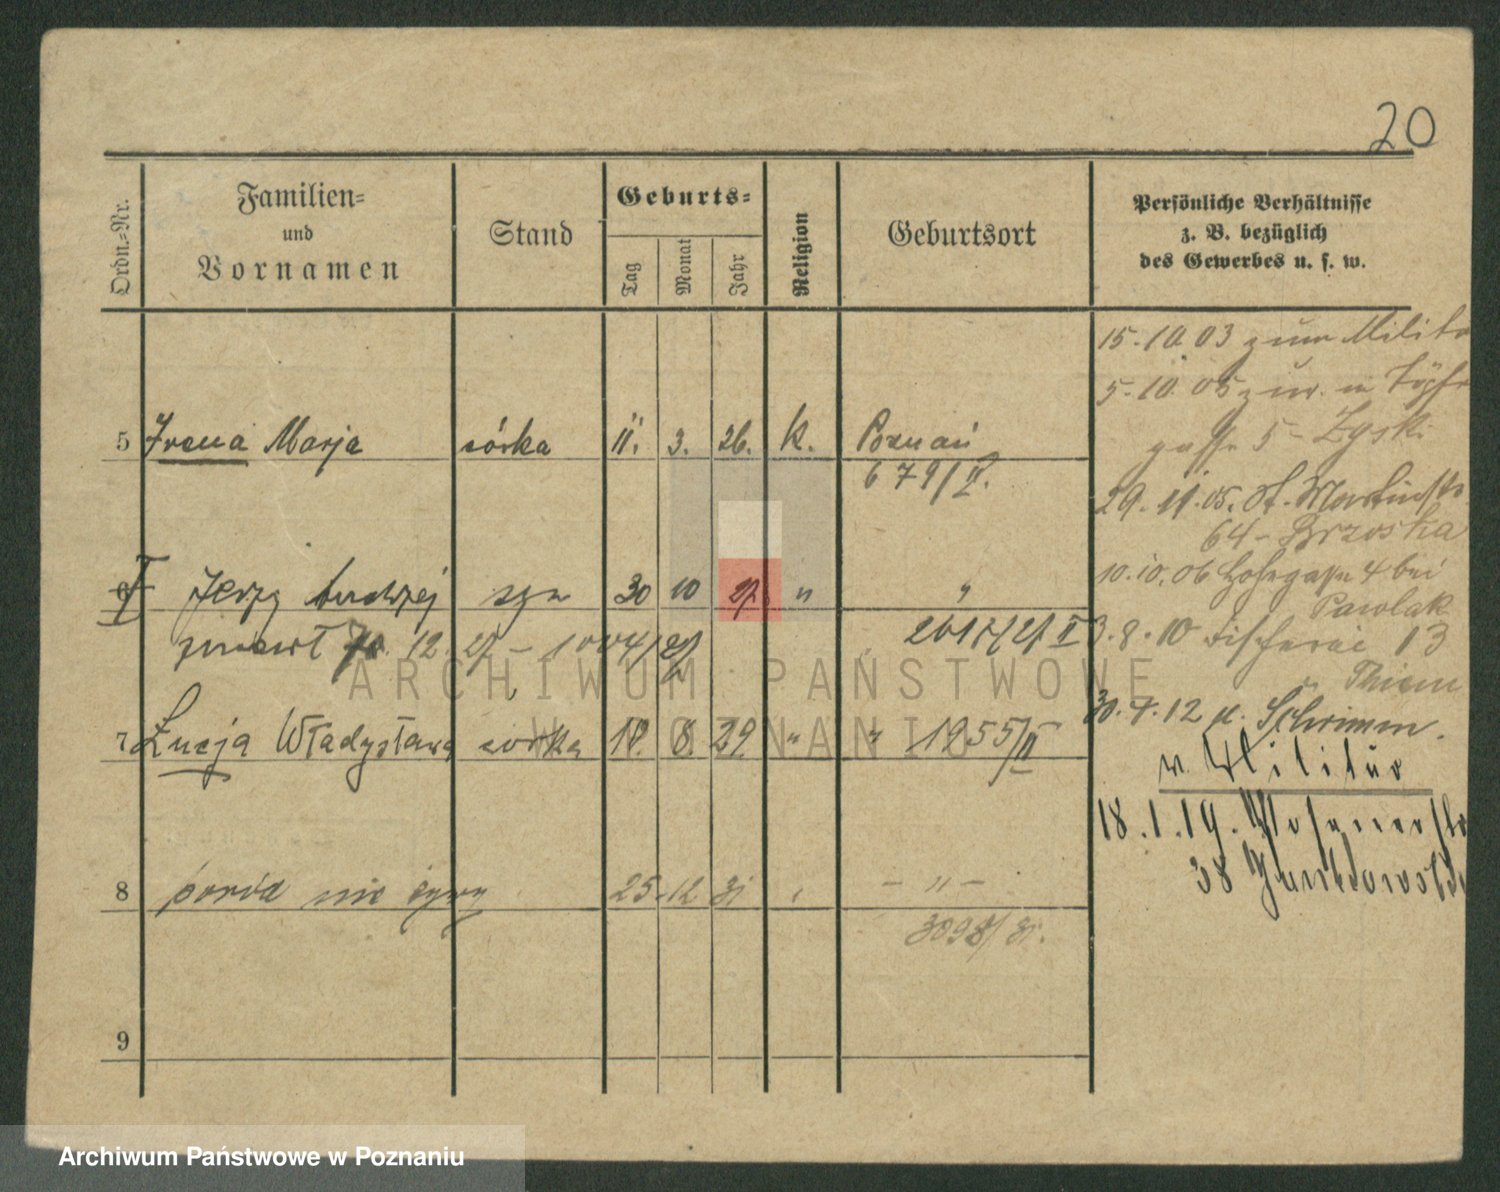 20
Ordn.-Nr.
Familien-
und
Vornamen
Stand
Geburts-
Tag
Monat
Jahr
Religion
Geburtsort
Persönliche Verhältnisse
z. B. bezüglich
des Gewerbes u. s. w.
5 Irena Marja córka 11. 3. 26. K. Poznań
679/II.
6 Jerzy Andrzej syn 30 10 27. " "
zmarł 12. 27 –
7 Łucja Władysława córka 18. 8. 29. " " 1955/II
8 poród nie żywy 25. 12 31 " – " –
3098/31.
9
15.10.03 zum Militä
5.10.05 zur. in Töpf
gasse 5 – Zyski
29.11.05. St. Martinstr
64 – Brzoska
10.10.06 4 bei
Pawlak
3.8.10 Fischerei 13
Thiem
30.4.12 n. Schrimm.
v. Militär
18.1.19. Posenerstr
38
ARCHIWUM PAŃSTWOWE
W POZNANIU
Archiwum Państwowe w Poznaniu